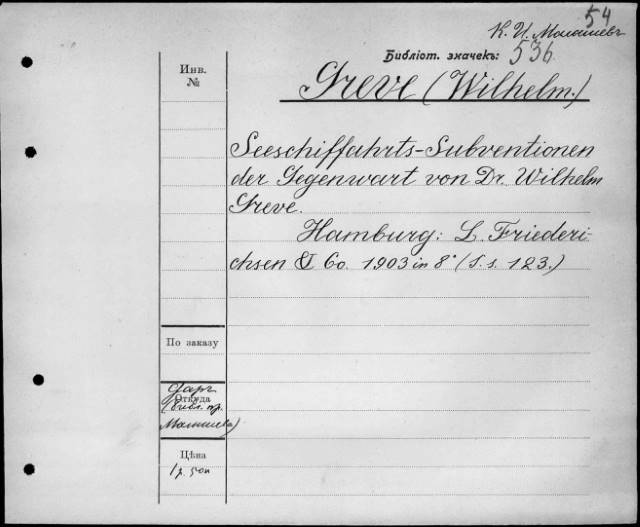 54
К. И.
Библіот. значекъ: 536
Инв.
№
Greve (Wilhelm.)
Seeschiffahrts-Subventionen
der Gegenwart von Dr. Wilhelm
Greve.
Hamburg: L. Friederi-
chsen & Co. 1903 in 8° (S. s. 123.)
По заказу
Даръ
Откуда
(библ. пр.
Цѣна
1 р. 50 к